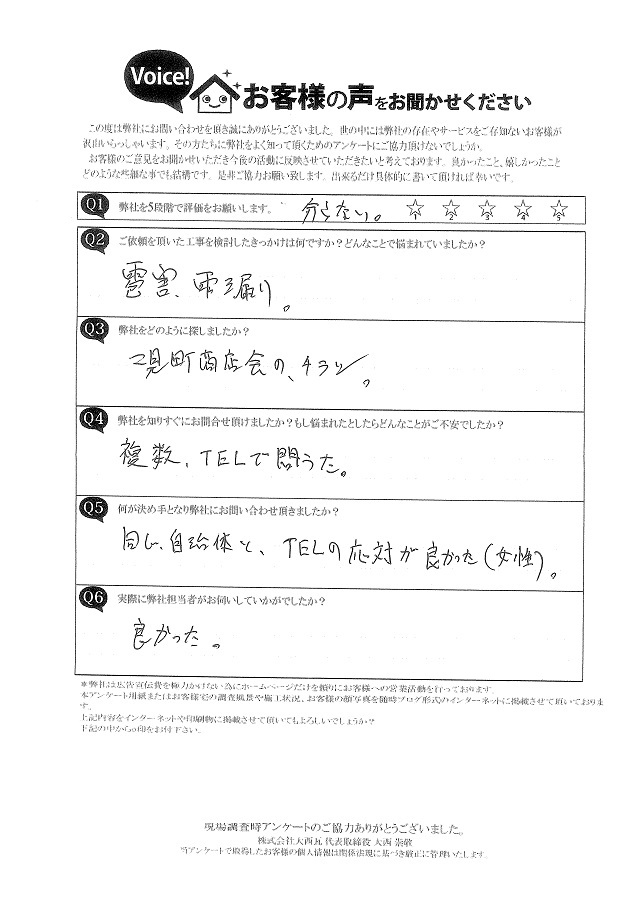 Voice!
お客様の声をお聞かせください
この度は弊社にお問い合わせを頂き誠にありがとうございました。世の中には弊社の存在やサービスをご存知ないお客様が
沢山いらっしゃいます。その方たちに弊社をよく知って頂くためのアンケートにご協力頂けないでしょうか。
お客様のご意見をお聞かせいただき今後の活動に反映させていただきたいと考えております。良かったこと、嬉しかったこと
どのような些細な事でも結構です。是非ご協力お願い致します。出来るだけ具体的に書いて頂ければ幸いです。
Q1 弊社を5段階で評価をお願いします。 分らない。 1 2 3 4 5
Q2 ご依頼を頂いた工事を検討したきっかけは何ですか？どんなことで悩まれていましたか？
雹害、雨漏り。
Q3 弊社をどのように探しましたか？
二見町商店会の、チラシ。
Q4 弊社を知りすぐにお問合せ頂けましたか？もし悩まれたとしたらどんなことがご不安でしたか？
複数、TELで問うた。
Q5 何が決め手となり弊社にお問い合わせ頂きましたか？
同じ、自治体と、TELの応対が良かった(女性)。
Q6 実際に弊社担当者がお伺いしていかがでしたか？
良かった。
＊弊社は広告宣伝費を極力かけない為にホームページだけを頼りにお客様への営業活動を行っております。
本アンケート用紙またはお客様宅の調査風景や施工状況、お客様の顔写真を随時ブログ形式のインターネットに掲載させて頂いておりま
す。
上記内容をインターネットや印刷物に掲載させて頂いてもよろしいでしょうか？
下記の中から○印をお付け下さい。
現場調査時アンケートのご協力ありがとうございました。
株式会社大西瓦 代表取締役 大西 崇敬
当アンケートで取得したお客様の個人情報は関係法規に基づき厳正に管理いたします。